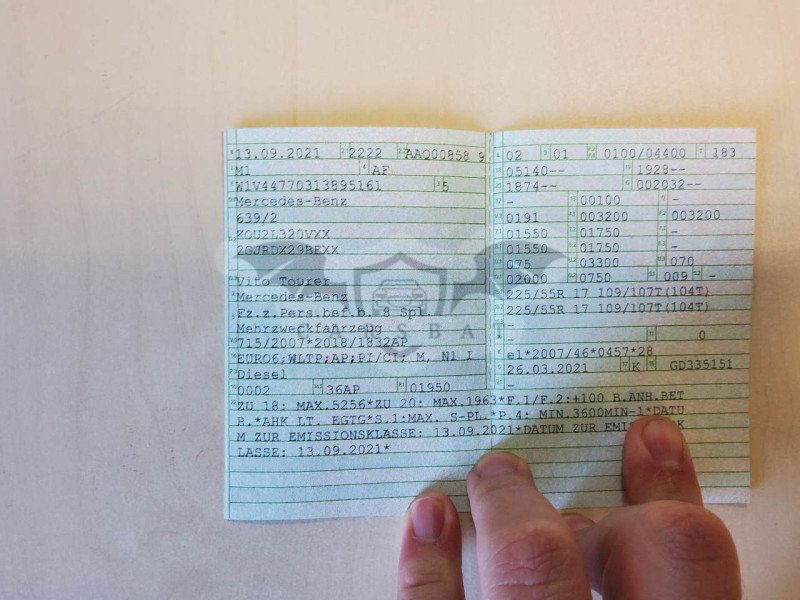 13.09.2021 2222 AAQ00858 9
M1 AF
W1V44770313895161 5
Mercedes-Benz
639/2
KOU2L320VXX
2GJRDX29BEXX
Vito Tourer
Mercedes-Benz
Fz.z.Pers.bef.b. 8 Spl.
Mehrzweckfahrzeug
715/2007*2018/1832AP
EURO6;WLTP;AP;PI/CI; M, N1 I
Diesel
0002 36AP 01950
02 01 0100/04400 183
05140-- 1928--
1874-- 002032--
- 00100 -
0191 003200 003200
01550 01750 -
01550 01750 -
075 03300 070
02000 0750 009 -
225/55R 17 109/107T(104T)
225/55R 17 109/107T(104T)
-
- 0
e1*2007/46*0457*28
26.03.2021 K GD335151
-
ZU 18: MAX.5256*ZU 20: MAX.1963*F.1/F.2:+100 B.ANH.BET
R.*AHK LT. EGTG*S.1:MAX. S-PL.*P.4: MIN.3600MIN-1*DATU
M ZUR EMISSIONSKLASSE: 13.09.2021*DATUM ZUR EMIS K
LASSE: 13.09.2021*
CARSBAT